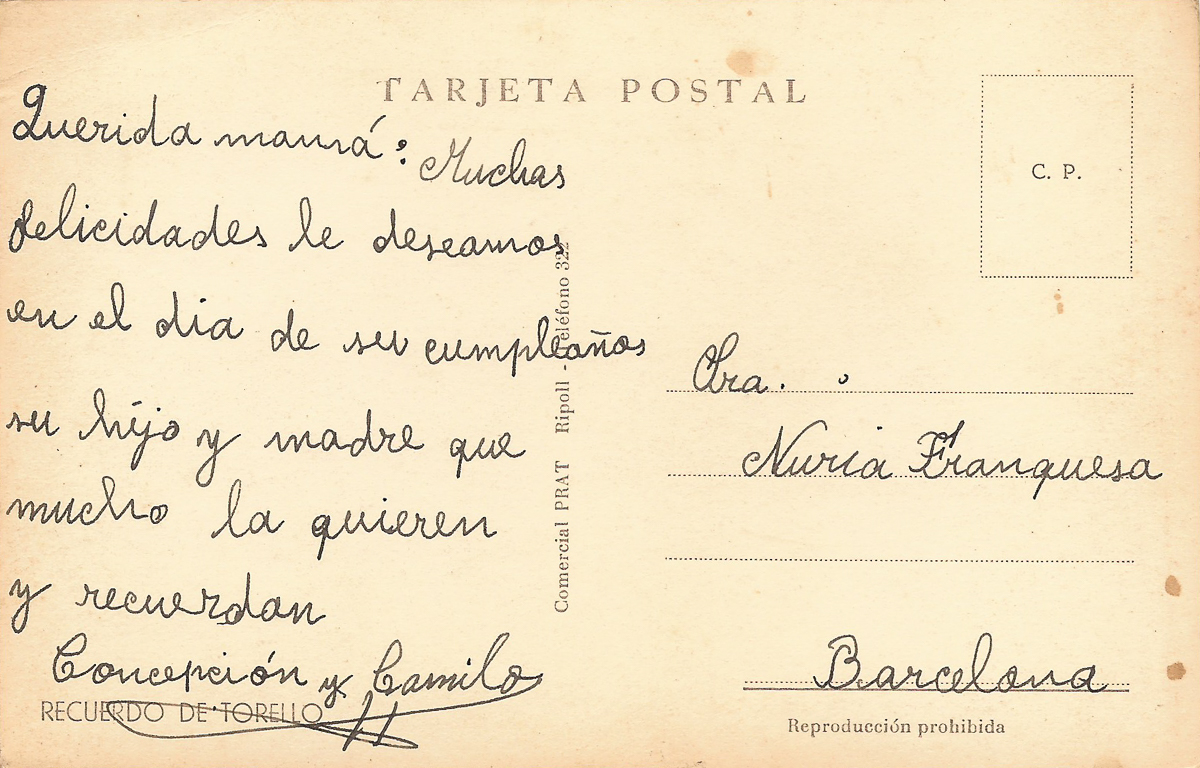 TARJETA POSTAL
Querida mamá: Muchas
felicidades le deseamos
en el dia de su cumpleaños
su hijo y madre que
mucho la quieren
y recuerdan
Concepción y Camilo
RECUERDO DE TORELLO
Comercial PRAT Ripoll - Teléfono 322
C. P.
Sra.
Nuria Franquesa
Barcelona
Reproducción prohibida